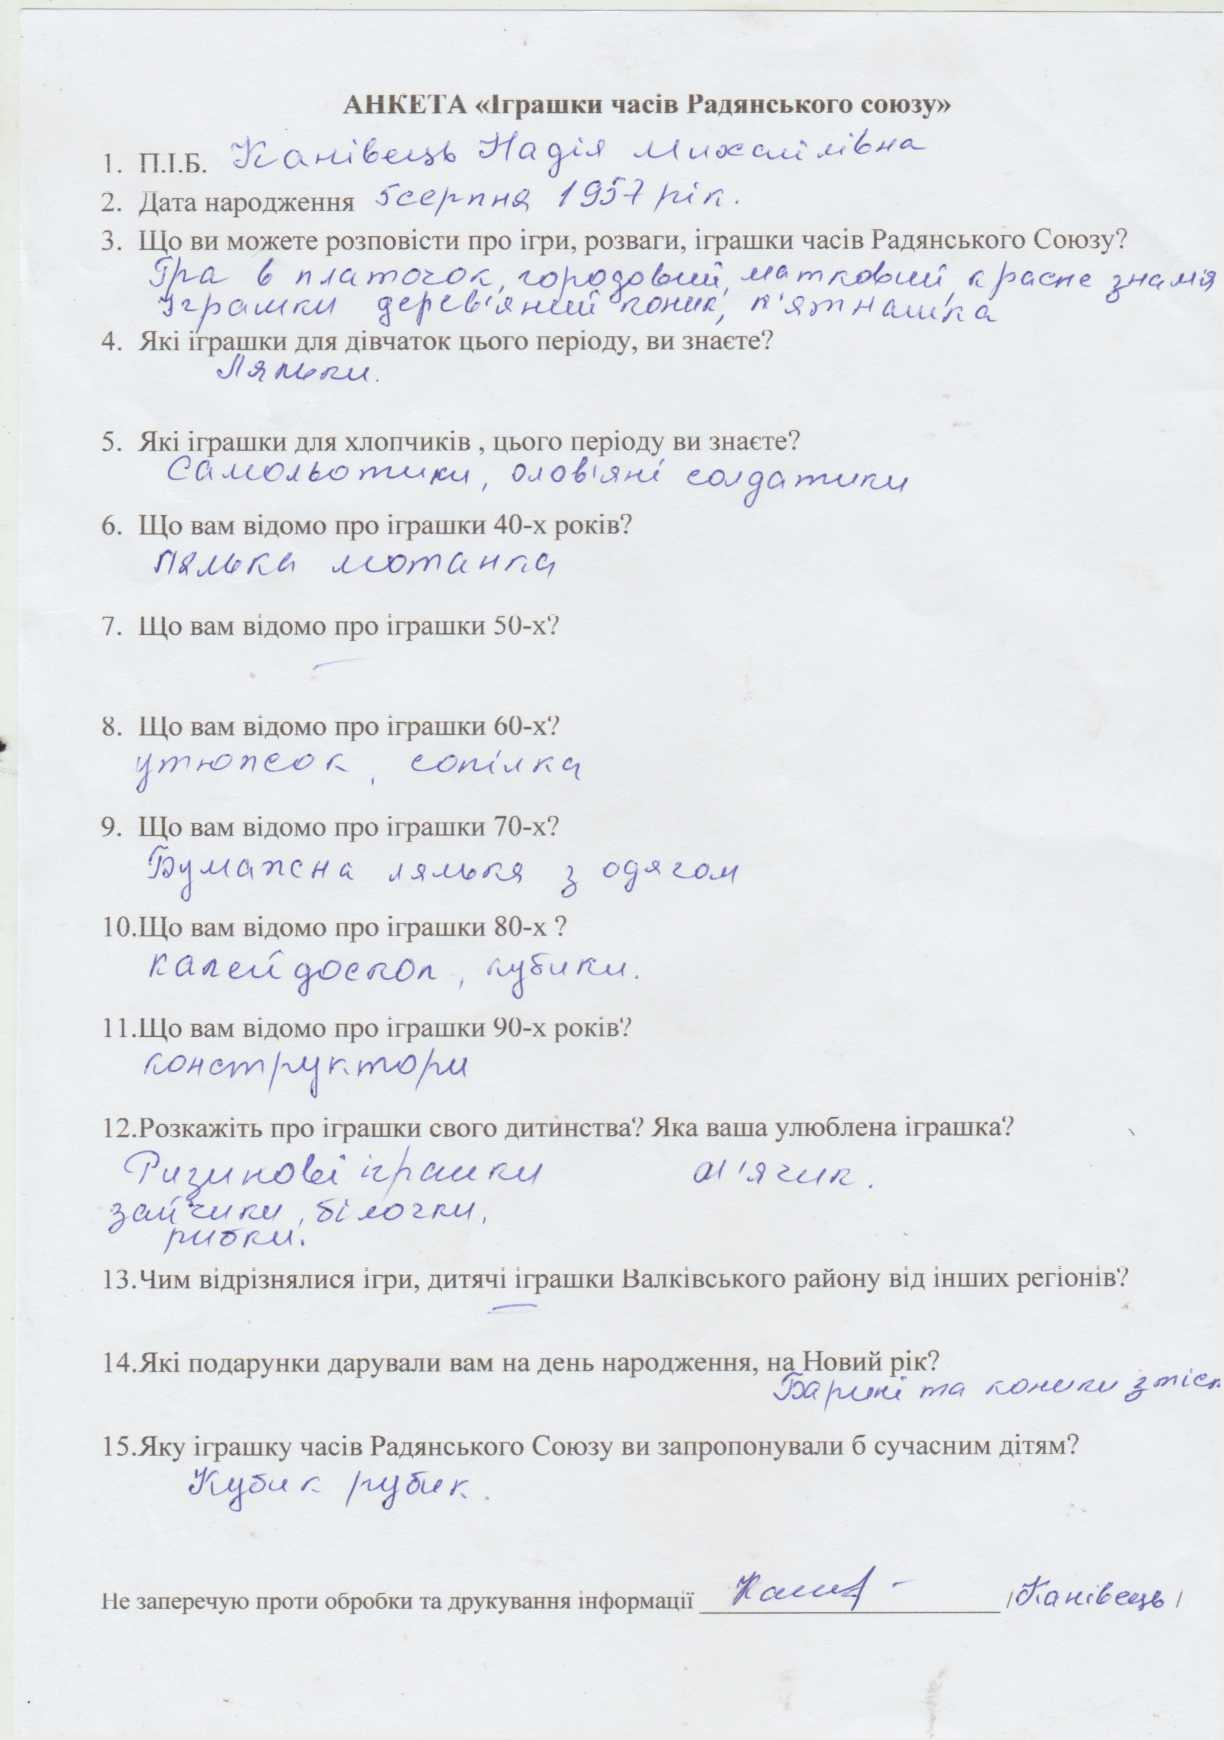 АНКЕТА «Іграшки часів Радянського союзу»
1. П.І.Б. Канівець Надія Михайлівна
2. Дата народження 5 серпня 1957 рік.
3. Що ви можете розповісти про ігри, розваги, іграшки часів Радянського Союзу?
Гра в платочок, городовий, матковий, красне знамя
Іграшки дерев'яний коник, п'ятнашка
4. Які іграшки для дівчаток цього періоду, ви знаєте?
Ляльки.
5. Які іграшки для хлопчиків , цього періоду ви знаєте?
Самольотики, олов'яні солдатики
6. Що вам відомо про іграшки 40-х років?
Лялька мотанка
7. Що вам відомо про іграшки 50-х?
–
8. Що вам відомо про іграшки 60-х?
утюжок, сопілка
9. Що вам відомо про іграшки 70-х?
Бумажна лялька з одягом
10.Що вам відомо про іграшки 80-х ?
калейдоскоп, кубики.
11.Що вам відомо про іграшки 90-х років?
конструктори
12.Розкажіть про іграшки свого дитинства? Яка ваша улюблена іграшка?
Ризинові іграшки м'ячик.
зайчики, білочки,
рибки.
13.Чим відрізнялися ігри, дитячі іграшки Валківського району від інших регіонів?
–
14.Які подарунки дарували вам на день народження, на Новий рік?
Барині та коники з тіст
15.Яку іграшку часів Радянського Союзу ви запропонували б сучасним дітям?
Кубик рубик.
Не заперечую проти обробки та друкування інформації ______ /Канівець/